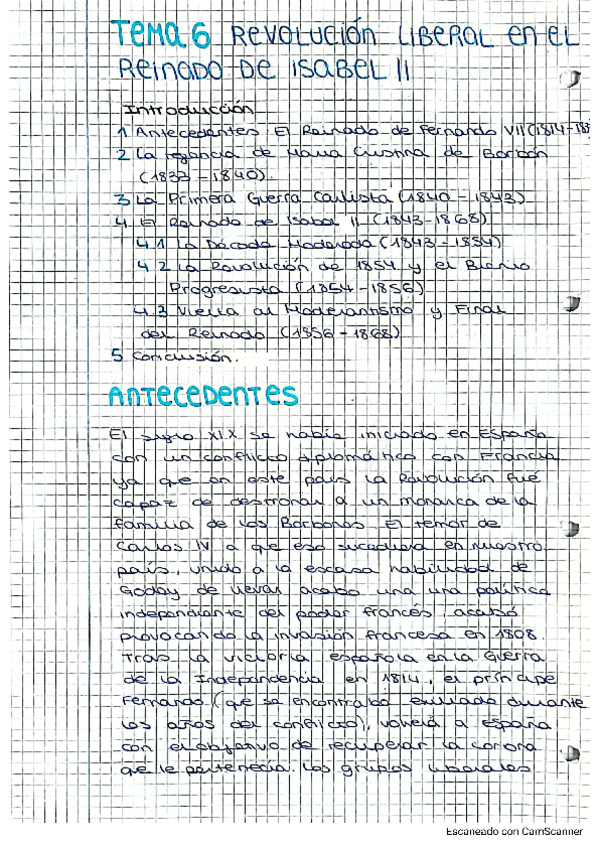 TEMA 6 REVOLUCIÓN LIBERAL EN EL
REINADO DE ISABEL II
Introducción
1 Antecedentes: El Reinado de Fernando VII (1814-18
2 La regencia de María Cristina de Borbón
(1833-1840).
3 La Primera Guerra Carlista (1840-1843)
4 El Reinado de Isabel II (1843-1868)
4.1 La Década Moderada (1843-1854)
4.2 La Revolución de 1854 y el Bienio
Progresista (1854-1856)
4.3 Vuelta al Moderantismo y Final
del Reinado (1856-1868)
5 Conclusión.
ANTECEDENTES
El siglo XIX se había iniciado en España
con un conflicto diplomático con Francia
ya que en este país la Revolución fué
capaz de destronar a un monarca de la
familia de los Borbones. El temor de
Carlos IV a que eso sucediera en nuestro
país, unido a la escasa habilidad de
Godoy de llevar acabo una una política
independiente del poder francés, acabó
provocando la invasión francesa en 1808.
Tras la victoria española en la Guerra
de la Independencia en 1814, el príncipe
Fernando (que se encontraba exiliado durante
los años del conflicto), volverá a España
con el objetivo de recuperar la corona
que le pertenecía. Los grupos liberales
Escaneado con CamScanner